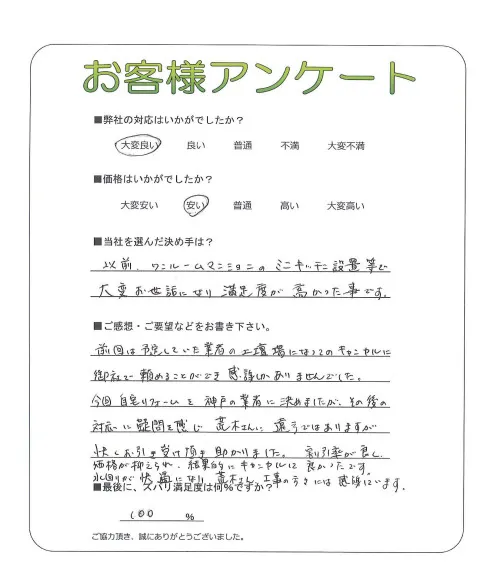 お客様アンケート
■弊社の対応はいかがでしたか？
大変良い 良い 普通 不満 大変不満
■価格はいかがでしたか？
大変安い 安い 普通 高い 大変高い
■当社を選んだ決め手は？
以前、ワンルームマンションのミニキッチン設置等で
大変お世話になり満足度が高かった事です。
■ご感想・ご要望などをお書き下さい。
前回は予定していた業者の工場になってのキャンセルに
御社で頼めることができ感謝しかありませんでした。
今回自宅リフォームを神戸の業者に決めましたが、その後の
対応に疑問を感じ荒木さんに遠方ではありますが
快くお引き受け頂き助かりました。割引率が良く、
価格が抑えられ、結果的にキャンセルして良かったです。
水回りが快適になり荒木さん、工事の方々には感謝しています。
■最後に、ズバリ満足度は何%ですか？
100 %
ご協力頂き、誠にありがとうございました。